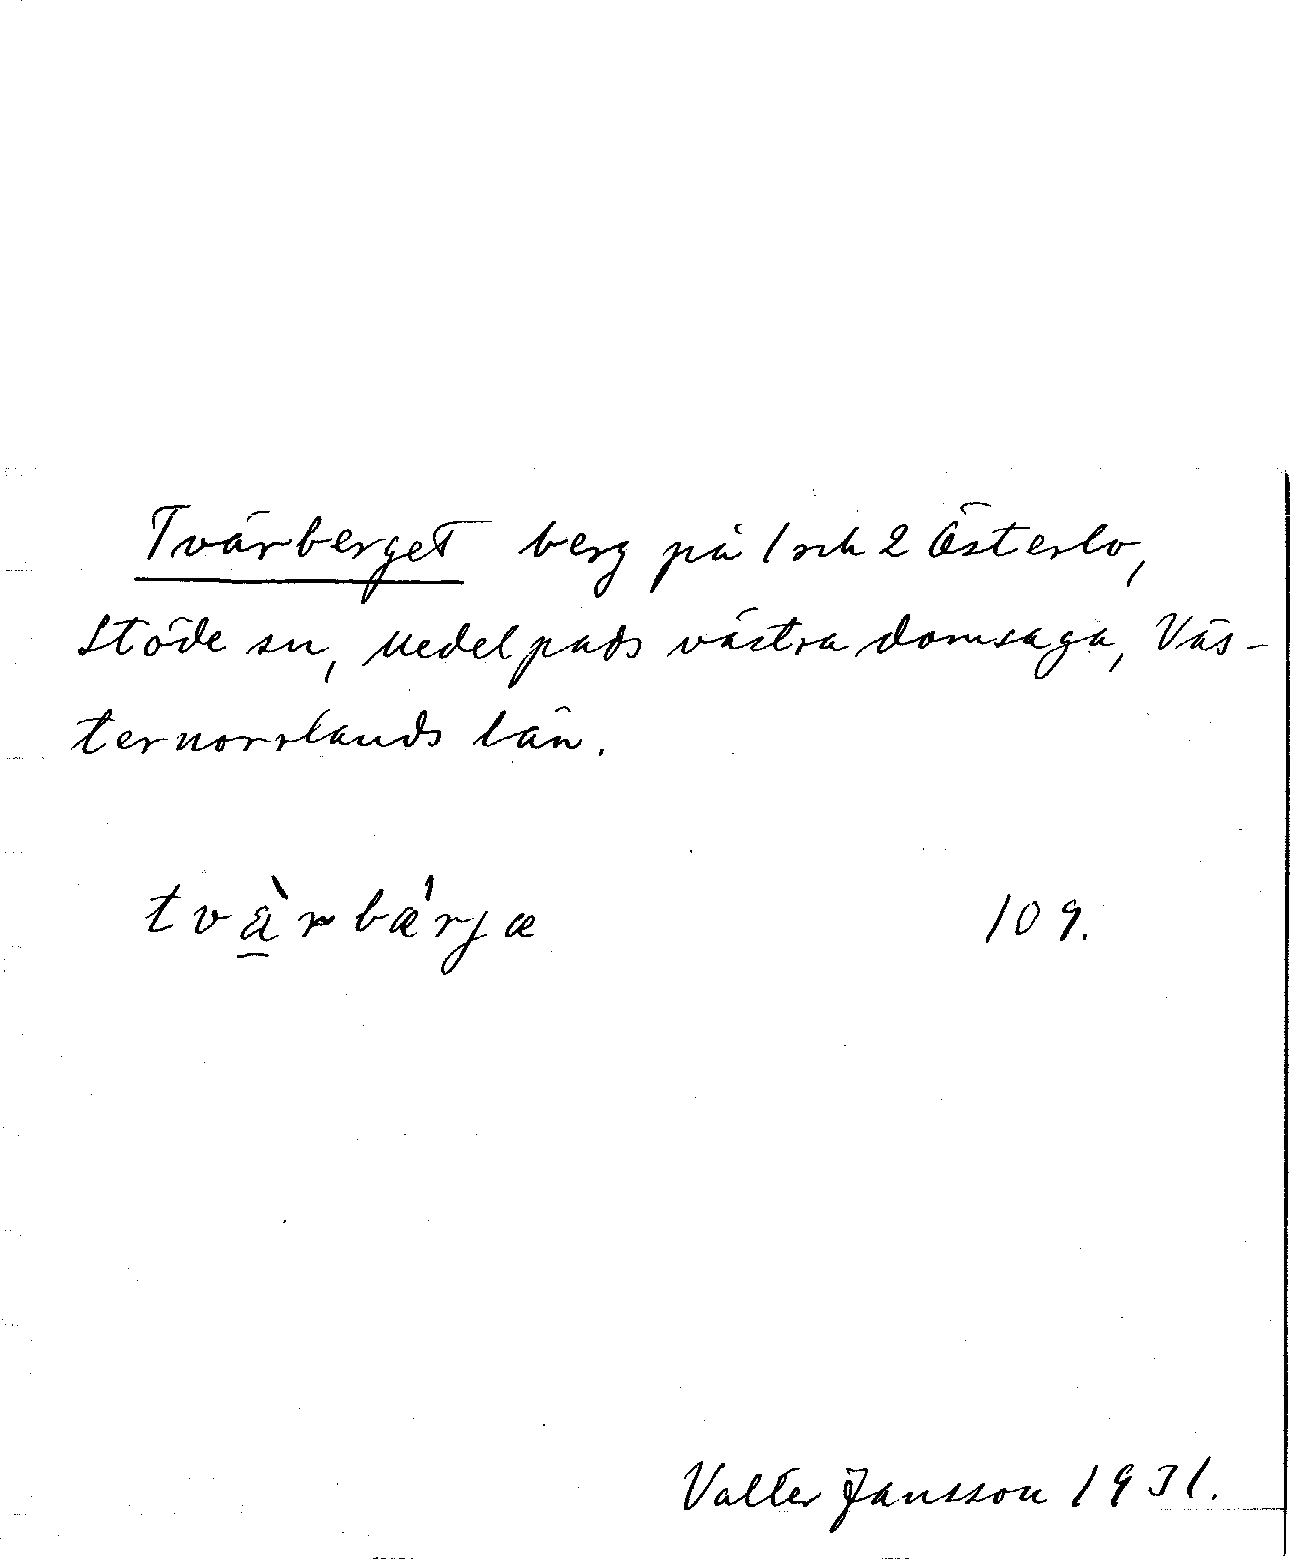 Tvärberget berg på 1 och 2 Österlo,
Stöde sn, Medelpads västra domsaga, Väs-
ternorrlands län.
tvä̀rbǽrjæ 109.
Valter Jansson 1931.